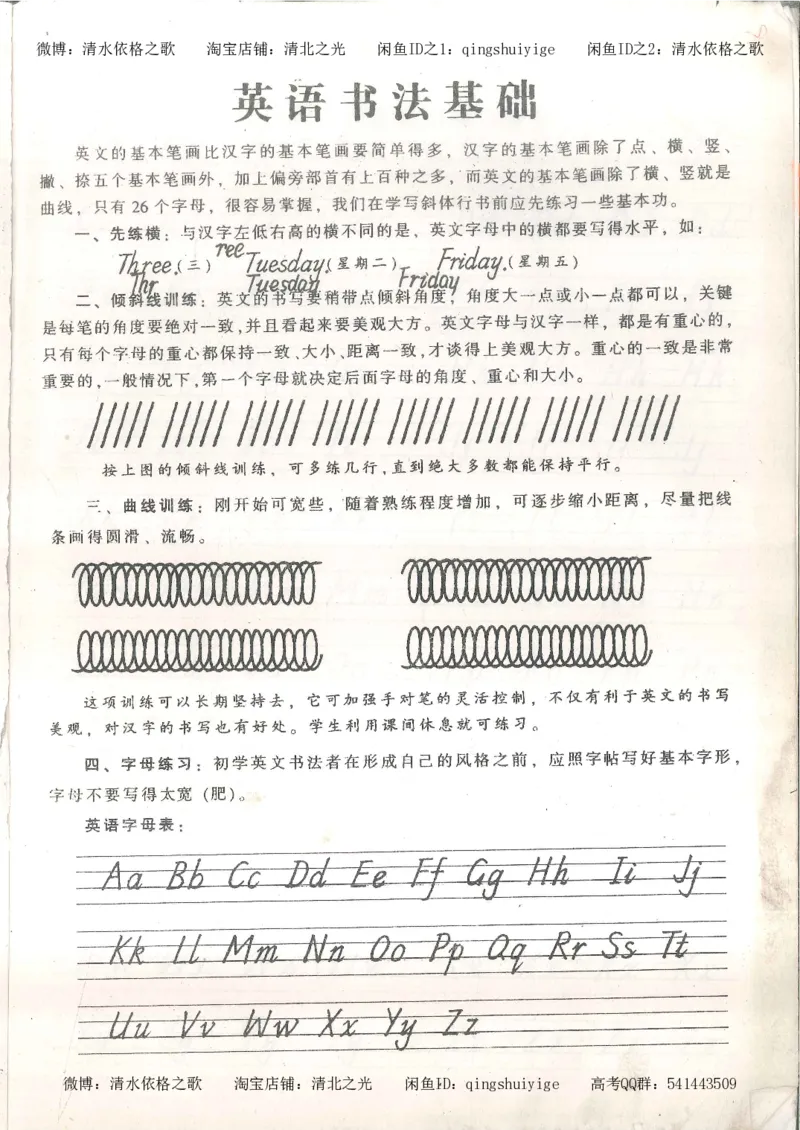 微博：清水依格之歌 淘宝店铺：清北之光 闲鱼ID之1：qingshuiyige 闲鱼ID之2：清水依格之歌
英语书法基础
英文的基本笔画比汉字的基本笔画要简单得多，汉字的基本笔画除了点、横、竖、
撇、捺五个基本笔画外，加上偏旁部首有上百种之多，而英文的基本笔画除了横、竖就是
曲线，只有 26 个字母，很容易掌握，我们在学写斜体行书前应先练习一些基本功。
一、先练横：与汉字左低右高的横不同的是，英文字母中的横都要写得水平，如：
ree
Three.(三) Tuesday.(星期二) Friday.(星期五)
Thr Tuesday Friday
二、倾斜线训练：英文的书写要稍带点倾斜角度，角度大一点或小一点都可以，关键
是每笔的角度要绝对一致，并且看起来要美观大方。英文字母与汉字一样，都是有重心的，
只有每个字母的重心都保持一致、大小、距离一致，才谈得上美观大方。重心的一致是非常
重要的，一般情况下，第一个字母就决定后面字母的角度、重心和大小。
按上图的倾斜线训练，可多练几行，直到绝大多数都能保持平行。
三、曲线训练：刚开始可宽些，随着熟练程度增加，可逐步缩小距离，尽量把线
条画得圆滑、流畅。
这项训练可以长期坚持去，它可加强手对笔的灵活控制，不仅有利于英文的书写
美观，对汉字的书写也有好处。学生利用课间休息就可练习。
四、字母练习：初学英文书法者在形成自己的风格之前，应照字帖写好基本字形，
字母不要写得太宽（肥）。
英语字母表：
Aa Bb Cc Dd Ee Ff Gg Hh Ii Jj
Kk Ll Mm Nn Oo Pp Qq Rr Ss Tt
Uu Vv Ww Xx Yy Zz
微博：清水依格之歌 淘宝店铺：清北之光 闲鱼ID：qingshuiyige 高考QQ群：541443509